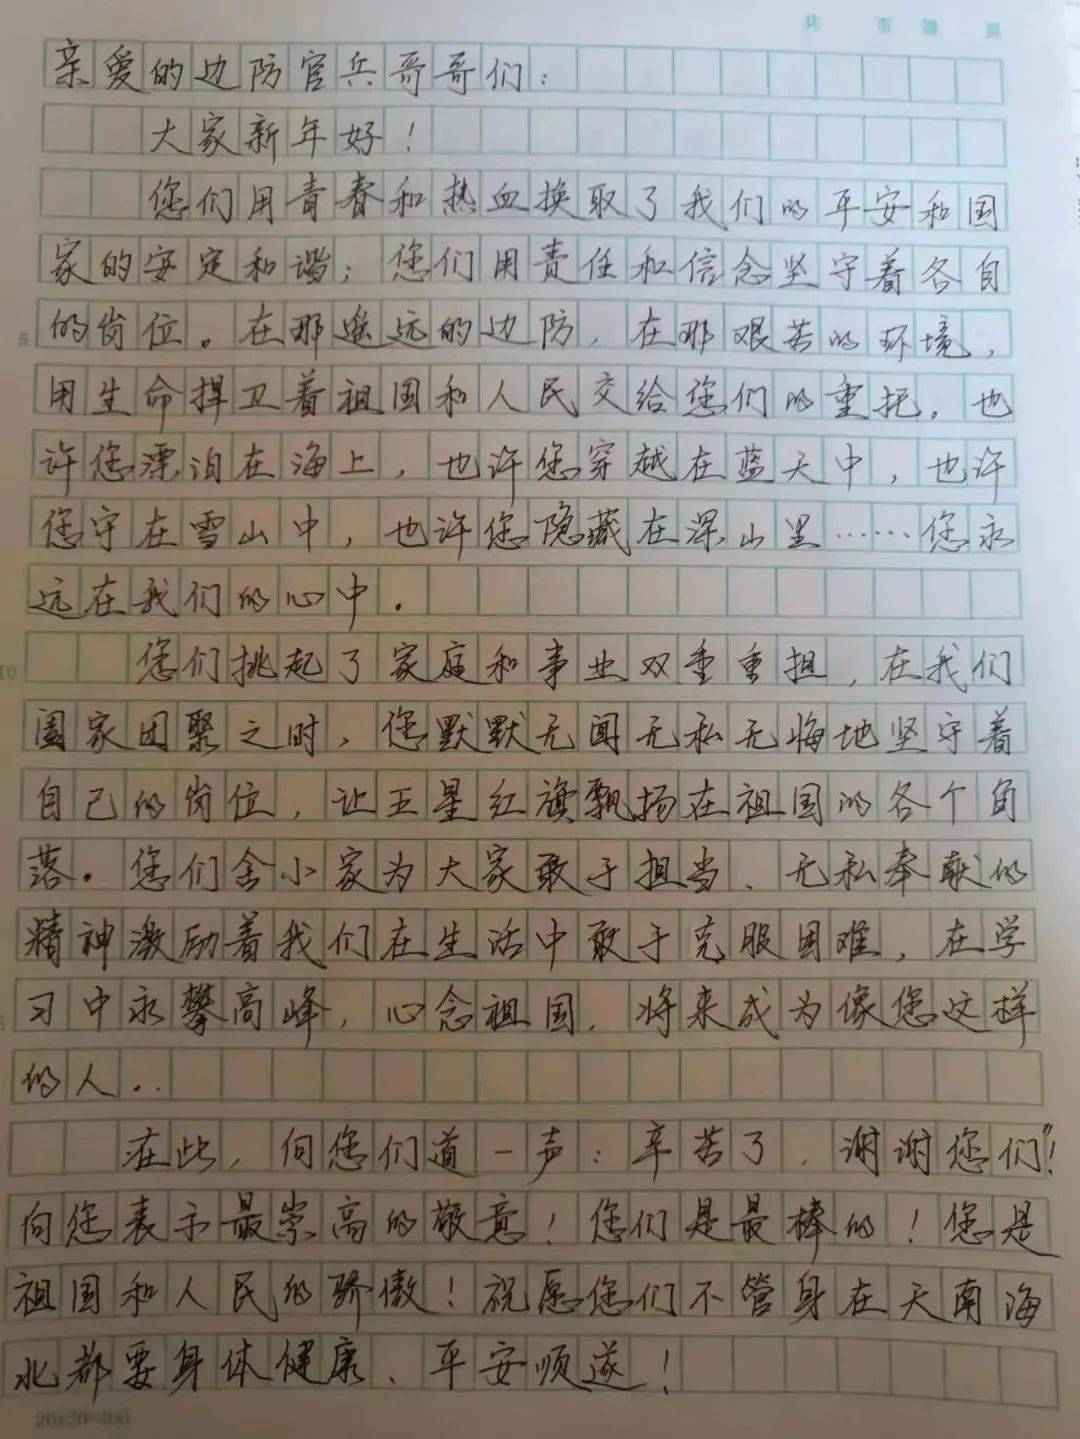 共 页 第 页
亲爱的边防官兵哥哥们：
大家新年好！
您们用青春和热血换取了我们的平安和国
家的安定和谐；您们用责任和信念坚守着各自
5 的岗位。在那遥远的边防，在那艰苦的环境，
用生命捍卫着祖国和人民交给您们的重托。也
许您漂泊在海上，也许您穿越在蓝天中，也许
您守在雪山中，也许您隐藏在深山里……您永
远在我们的心中。
10 您们挑起了家庭和事业双重重担，在我们
阖家团聚之时，您默默无闻无私无悔地坚守着
自己的岗位，让五星红旗飘扬在祖国的各个角
落。您们舍小家为大家敢于担当、无私奉献的
精神激励着我们在生活中敢于克服困难，在学
习中永攀高峰，心念祖国，将来成为像您这样
的人..
在此，向您们道一声：辛苦了，谢谢您们"！
向您表示最崇高的敬意！您们是最棒的！您是
祖国和人民的骄傲！祝愿您们不管身在天南海
北都要身体健康、平安顺遂！
20×20=400